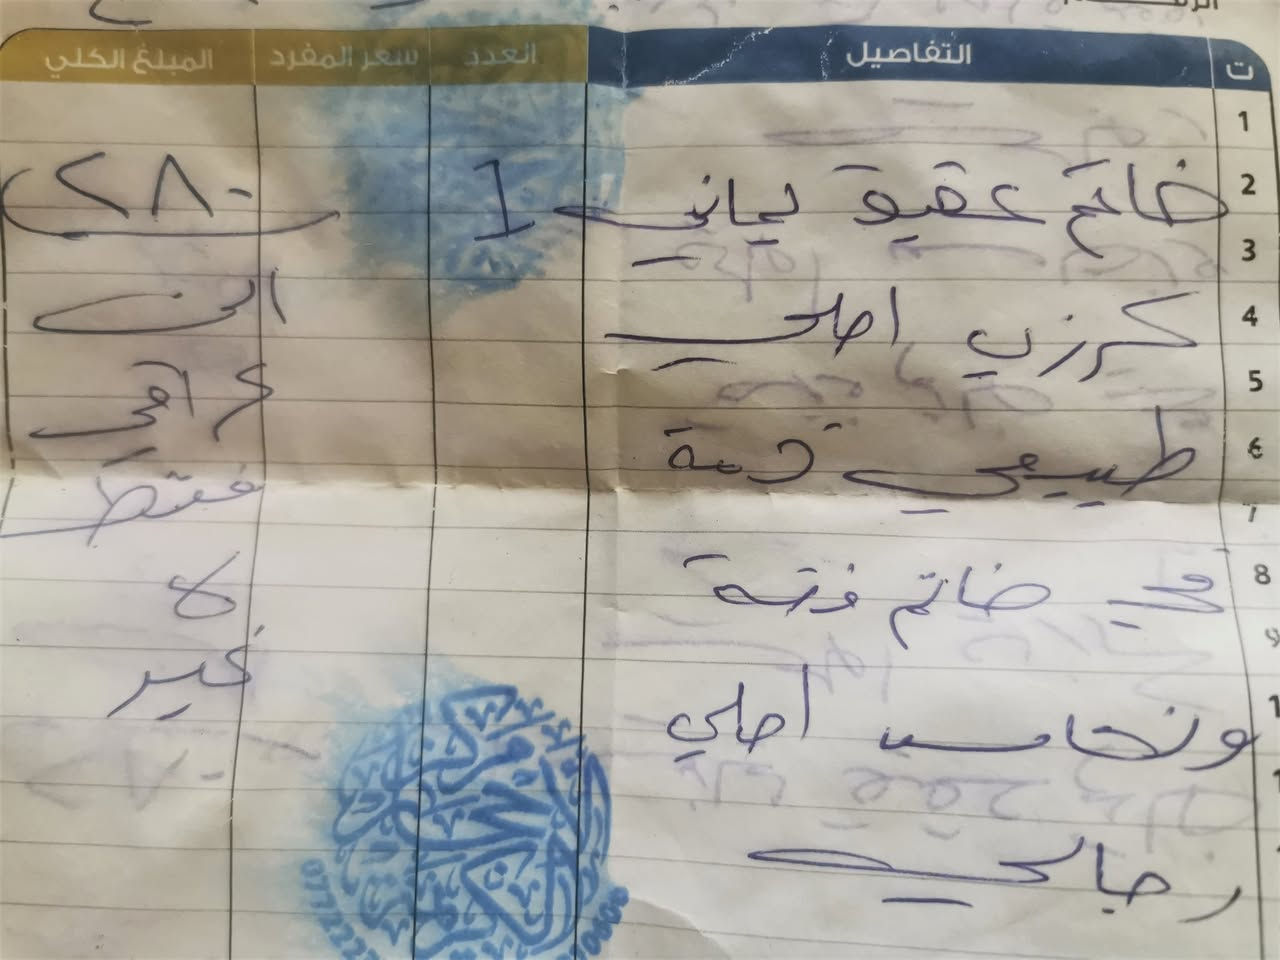 ت التفاصيل العدد سعر المفرد المبلغ الكلي
1
2 خاتم عقيق يماني 1 ٢٨٠
3
4 كرزي اصلي الف
5 عراقي
6 طبيعي
7 فقط
8 خاتم فضة لا
9 غير
ونحاس اصلي
رجالي